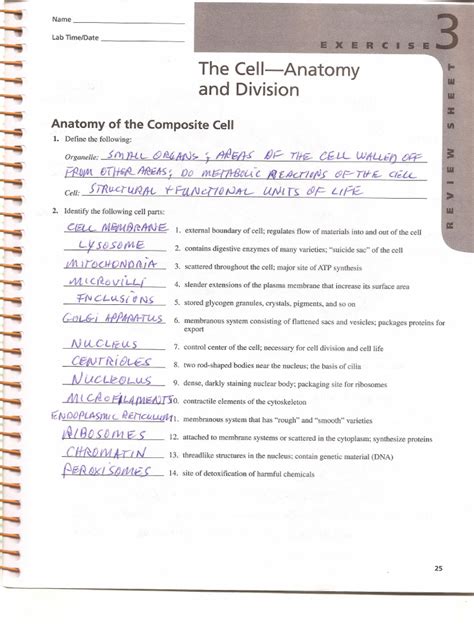 Name
Lab Time/Date
EXERCISE 3
REVIEW SHEET
The Cell—Anatomy
and Division
Anatomy of the Composite Cell
1. Define the following:
Organelle: SMALL ORGANS; AREAS OF THE CELL WALLED OFF
FROM OTHER AREAS; DO METABOLIC REACTIONS OF THE CELL
Cell: STRUCTURAL + FUNCTIONAL UNITS OF LIFE
2. Identify the following cell parts:
CELL MEMBRANE 1. external boundary of cell; regulates flow of materials into and out of the cell
LYSOSOME 2. contains digestive enzymes of many varieties; "suicide sac" of the cell
MITOCHONDRIA 3. scattered throughout the cell; major site of ATP synthesis
MICROVILLI 4. slender extensions of the plasma membrane that increase its surface area
INCLUSIONS 5. stored glycogen granules, crystals, pigments, and so on
GOLGI APPARATUS 6. membranous system consisting of flattened sacs and vesicles; packages proteins for
export
NUCLEUS 7. control center of the cell; necessary for cell division and cell life
CENTRIOLES 8. two rod-shaped bodies near the nucleus; the basis of cilia
NUCLEOLUS 9. dense, darkly staining nuclear body; packaging site for ribosomes
MICROFILAMENTS 10. contractile elements of the cytoskeleton
ENDOPLASMIC RETICULUM 11. membranous system that has "rough" and "smooth" varieties
RIBOSOMES 12. attached to membrane systems or scattered in the cytoplasm; synthesize proteins
CHROMATIN 13. threadlike structures in the nucleus; contain genetic material (DNA)
PEROXISOMES 14. site of detoxification of harmful chemicals
25